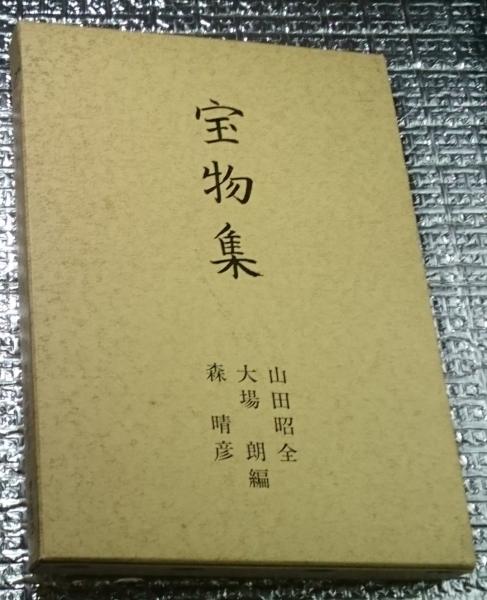 宝物集
山田昭全
大場朗編
森晴彦